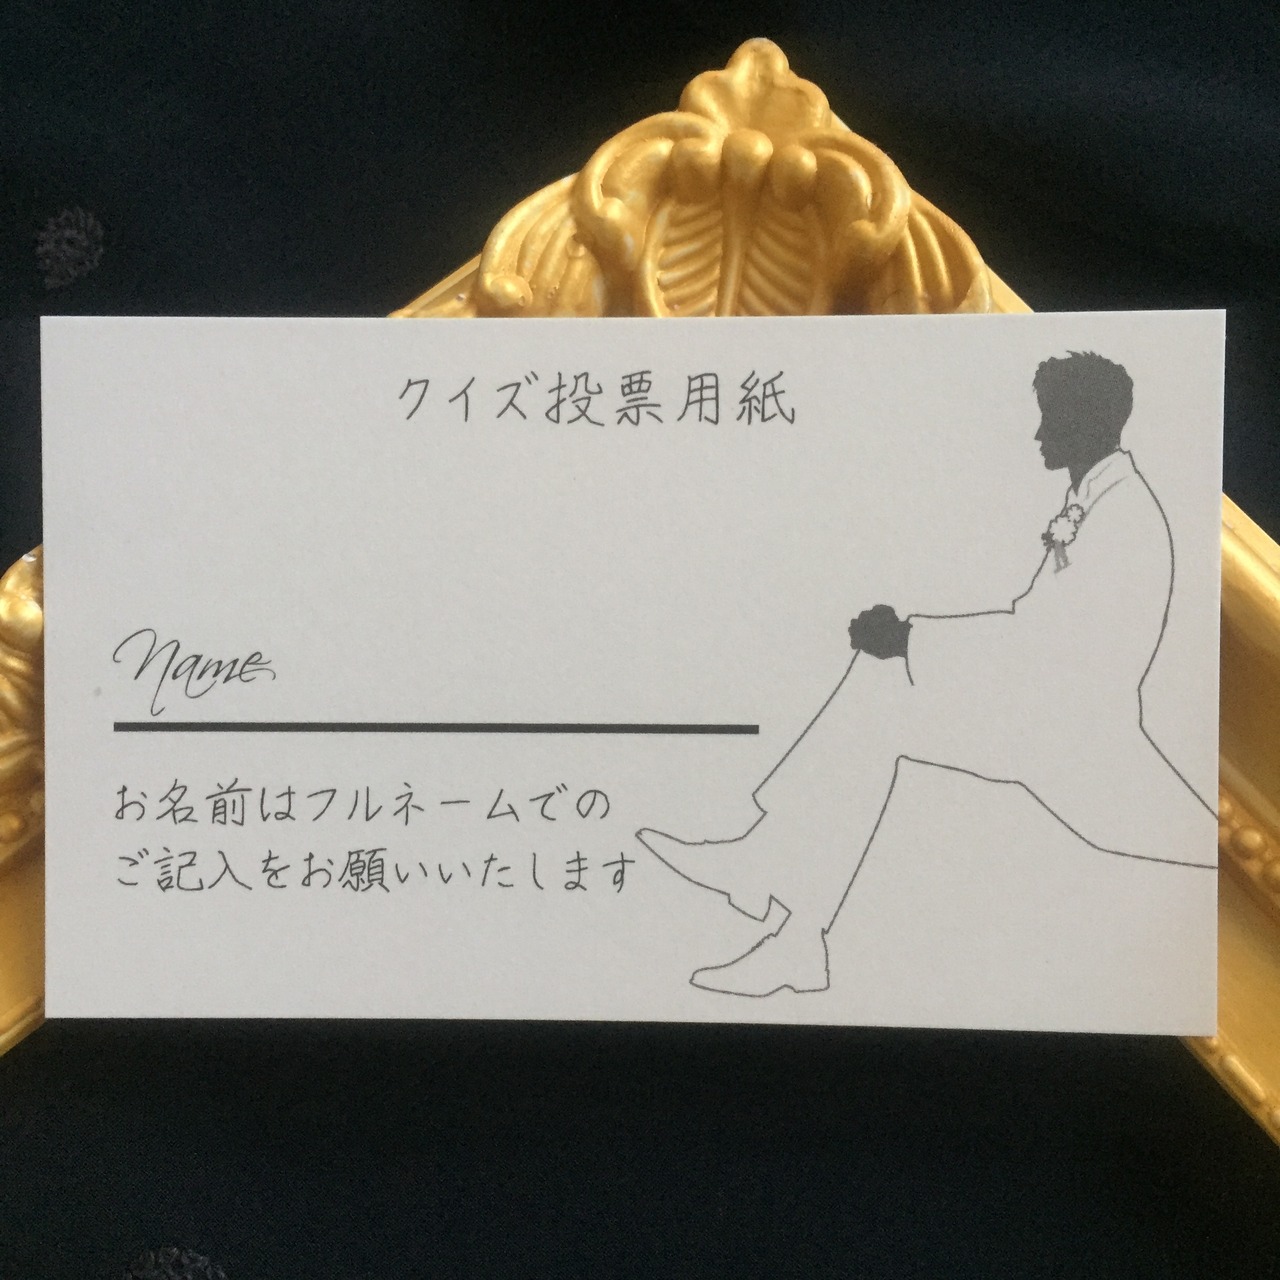 クイズ投票用紙
Name
お名前はフルネームでの
ご記入をお願いいたします